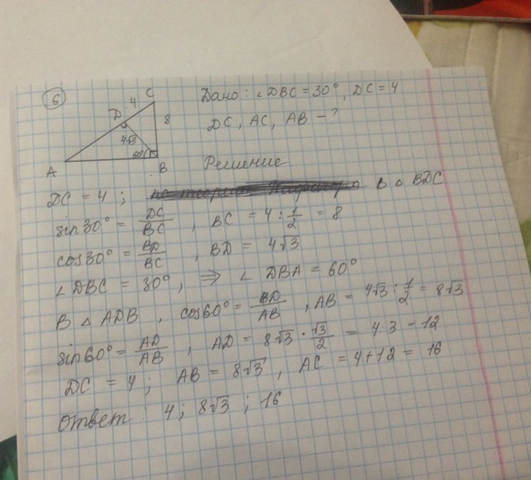 6
Дано: ∠DBC = 30°, DC = 4
DC, AC, AB – ?
Решение
C
4
D
8
4√3
60°
A
B
DC = 4; В △ BDC
sin30° = DC/BC, BC = 4 : 1/2 = 8
cos30° = BD/BC, BD = 4√3
∠DBC = 30°, ⇒ ∠DBA = 60°
В △ ADB, cos60° = BD/AB, AB = 4√3 : 1/2 = 8√3
sin60° = AD/AB, AD = 8√3 · √3/2 = 4·3 = 12
DC = 4; AB = 8√3, AC = 4+12 = 16
Ответ: 4; 8√3; 16